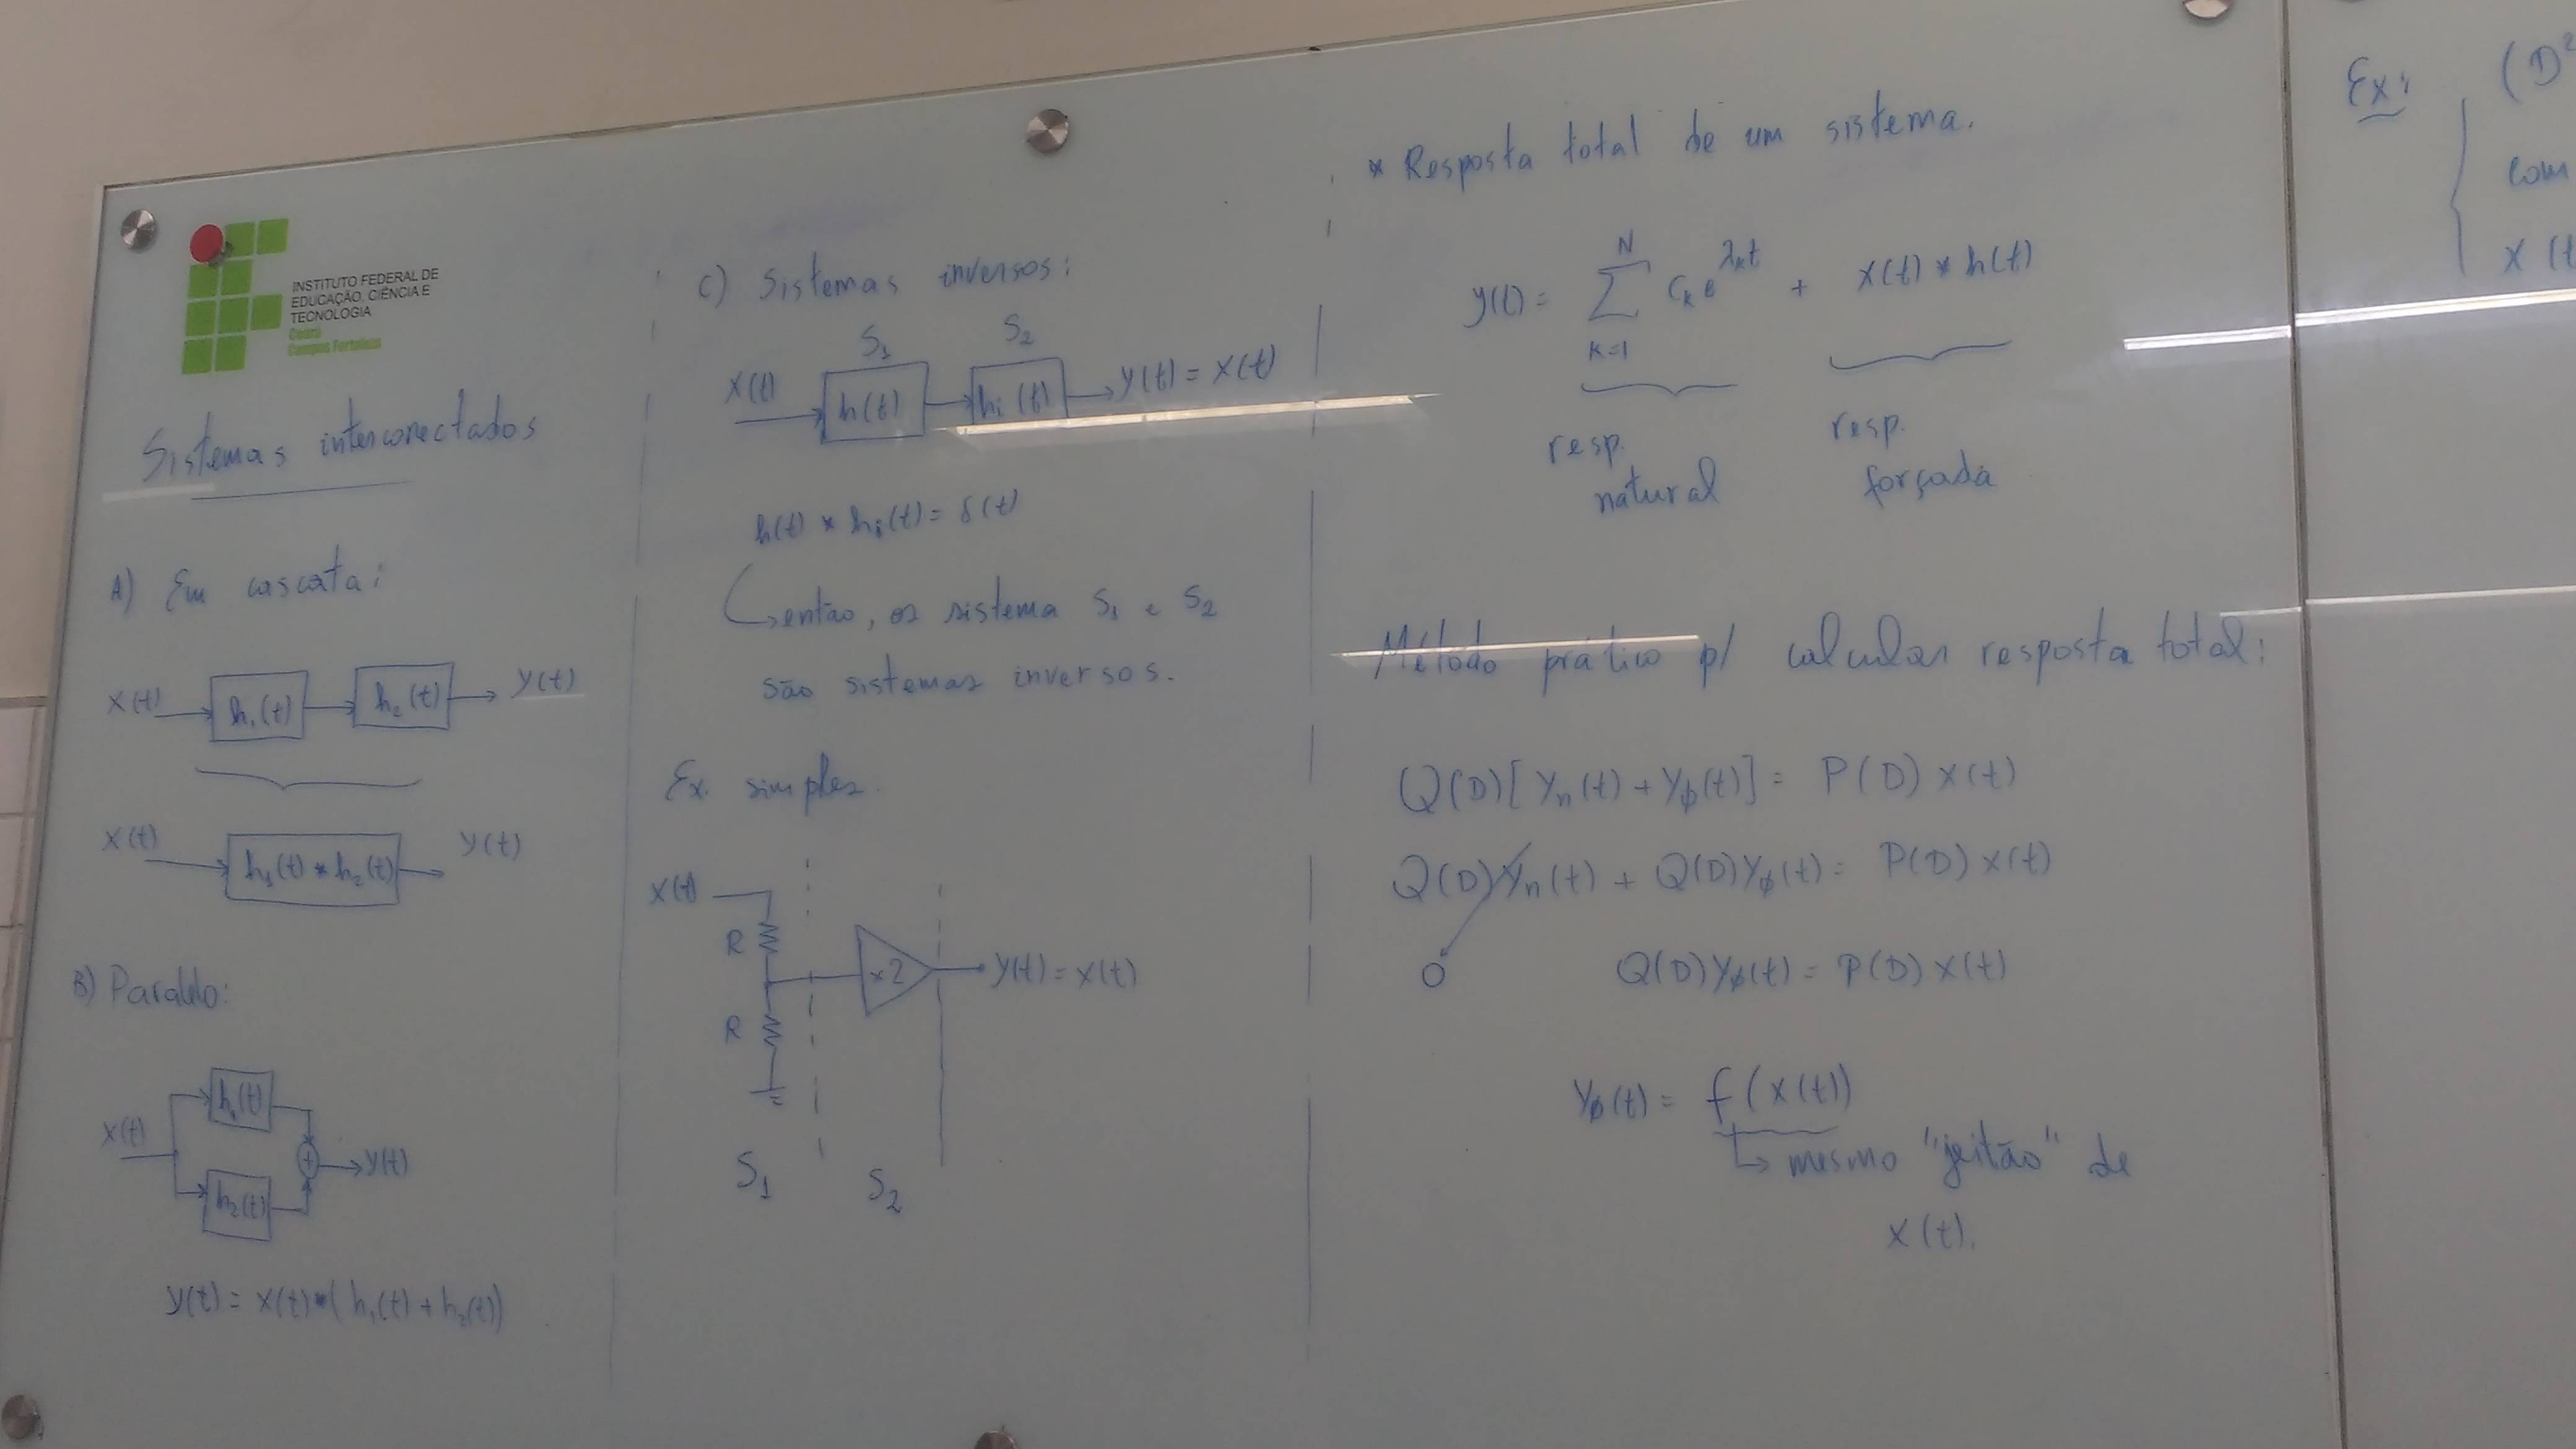 INSTITUTO FEDERAL DE
EDUCAÇÃO, CIÊNCIA E
TECNOLOGIA
Ceará
Campus Fortaleza
Sistemas interconectados
A) Em cascata:
x(t) h₁(t) h₂(t) y(t)
x(t) h₁(t) * h₂(t) y(t)
B) Paralelo:
h₁(t)
x(t) + y(t)
h₂(t)
y(t) = x(t) * (h₁(t) + h₂(t))
C) Sistemas inversos:
S₁ S₂
x(t) h(t) hᵢ(t) y(t) = x(t)
h(t) * hᵢ(t) = δ(t)
↳ então, os sistema S₁ e S₂
são sistemas inversos.
Ex. simples.
x(t)
R
×2 y(t) = x(t)
R
S₁ S₂
* Resposta total de um sistema.
y(t) = ∑ₖ₌₁ᴺ Cₖ e^(λₖt) + x(t) * h(t)
resp. natural
resp. forçada
Método prático p/ calcular resposta total:
Q(D)[yₙ(t) + yϕ(t)] = P(D) x(t)
Q(D)yₙ(t) + Q(D)yϕ(t) = P(D) x(t)
0 Q(D)yϕ(t) = P(D) x(t)
yϕ(t) = f(x(t))
↳ mesmo "jeitão" de
x(t).
Ex: (D²
com
x(t